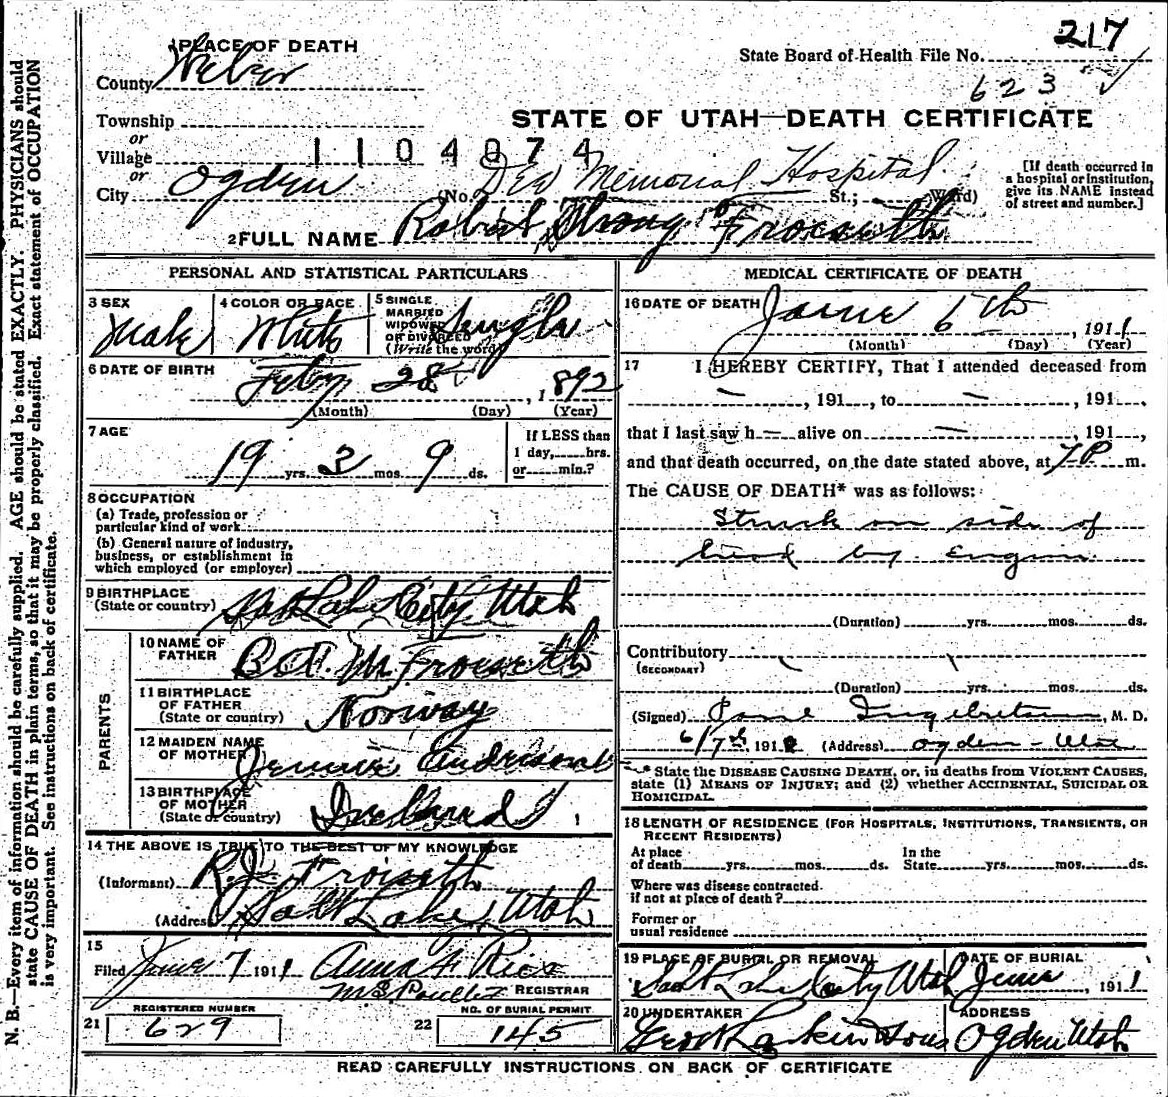 PLACE OF DEATH
County Weber
State Board of Health File No. 217
623
STATE OF UTAH—DEATH CERTIFICATE
Township
or
Village
1104074
or
City Ogden (No. Dee Memorial Hospital St.; Ward)
[If death occurred in a hospital or institution, give its NAME instead of street and number.]
2 FULL NAME Robert Froiseth
PERSONAL AND STATISTICAL PARTICULARS
3 SEX Male
4 COLOR OR RACE White
5 SINGLE MARRIED WIDOWED OR DIVORCED (Write the word) Single
6 DATE OF BIRTH Feby 28, 1892
(Month) (Day) (Year)
7 AGE 19 yrs. 3 mos. 9 ds.
If LESS than 1 day, hrs. or min.?
8 OCCUPATION
(a) Trade, profession or particular kind of work
(b) General nature of industry, business, or establishment in which employed (or employer)
9 BIRTHPLACE (State or country) Salt Lake City Utah
PARENTS
10 NAME OF FATHER B. A. M. Froiseth
11 BIRTHPLACE OF FATHER (State or country) Norway
12 MAIDEN NAME OF MOTHER
13 BIRTHPLACE OF MOTHER (State or country)
14 THE ABOVE IS TRUE TO THE BEST OF MY KNOWLEDGE
(Informant) R. J. Froiseth
(Address) Salt Lake, Utah
15
Filed June 7 1911 Anna F Rice
REGISTRAR
REGISTERED NUMBER
21 629
NO. OF BURIAL PERMIT
22 145
MEDICAL CERTIFICATE OF DEATH
16 DATE OF DEATH June 6th, 1911
(Month) (Day) (Year)
17 I HEREBY CERTIFY, That I attended deceased from
—, 191 , to —, 191 ,
that I last saw h — alive on — 191 ,
and that death occurred, on the date stated above, at 7 P m.
The CAUSE OF DEATH* was as follows:
Struck on side of
head by Engine
(Duration) yrs. mos. ds.
Contributory
(SECONDARY)
(Duration) yrs. mos. ds.
(Signed) Ingebretsen, M. D.
6/7th, 191 (Address) Ogden - Utah
* State the DISEASE CAUSING DEATH, or, in deaths from VIOLENT CAUSES,
state (1) MEANS OF INJURY; and (2) whether ACCIDENTAL, SUICIDAL OR
HOMICIDAL.
18 LENGTH OF RESIDENCE (FOR HOSPITALS, INSTITUTIONS, TRANSIENTS, OR
RECENT RESIDENTS)
At place of death yrs. mos. ds. In the State yrs. mos. ds.
Where was disease contracted, if not at place of death?
Former or usual residence
19 PLACE OF BURIAL OR REMOVAL Salt Lake City Utah
DATE OF BURIAL June, 1911
20 UNDERTAKER Geo W Larkin Sons
ADDRESS Ogden Utah
READ CAREFULLY INSTRUCTIONS ON BACK OF CERTIFICATE
N. B.—Every item of information should be carefully supplied. AGE should be stated EXACTLY. PHYSICIANS should
state CAUSE OF DEATH in plain terms, so that it may be properly classified. Exact statement of OCCUPATION
is very important. See instructions on back of certificate.